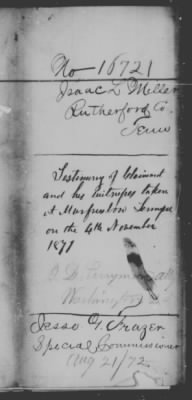 No 16721
Isaac L Miller
Rutherford Co.
Tenn
Testimony of Claimant
and his Witnesses taken
at Murfreesboro Tennessee
on the 4th November
1871
Washington
Jesse G. Frazer
Special Commissioner
Aug 21/72